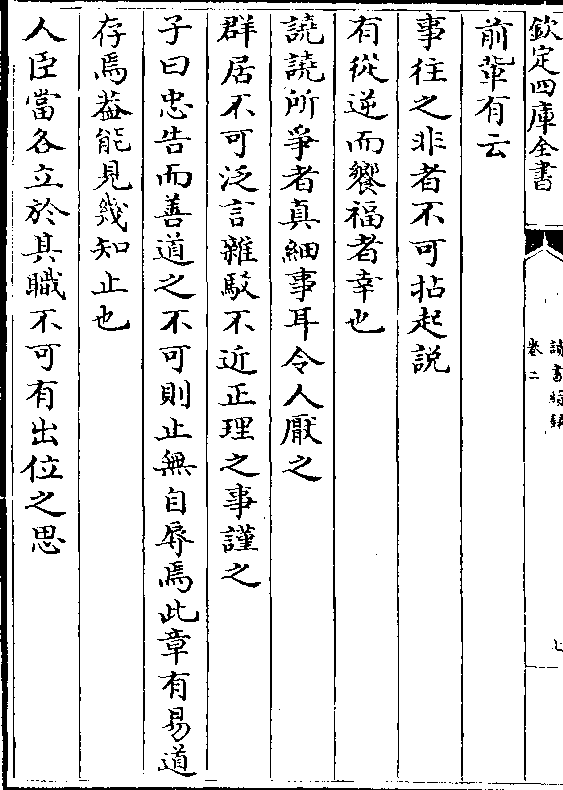 欽定四庫全書
讀書續錄
卷二
七
前輩有云
事往之非者不可拈起説
有從逆而饗福者幸也
譊譊所爭者真細事耳令人厭之
群居不可泛言雜駁不近正理之事謹之
子曰忠告而善道之不可則止無自辱焉此章有易道
存焉葢能見幾知止也
人臣當各立於其職不可有出位之思